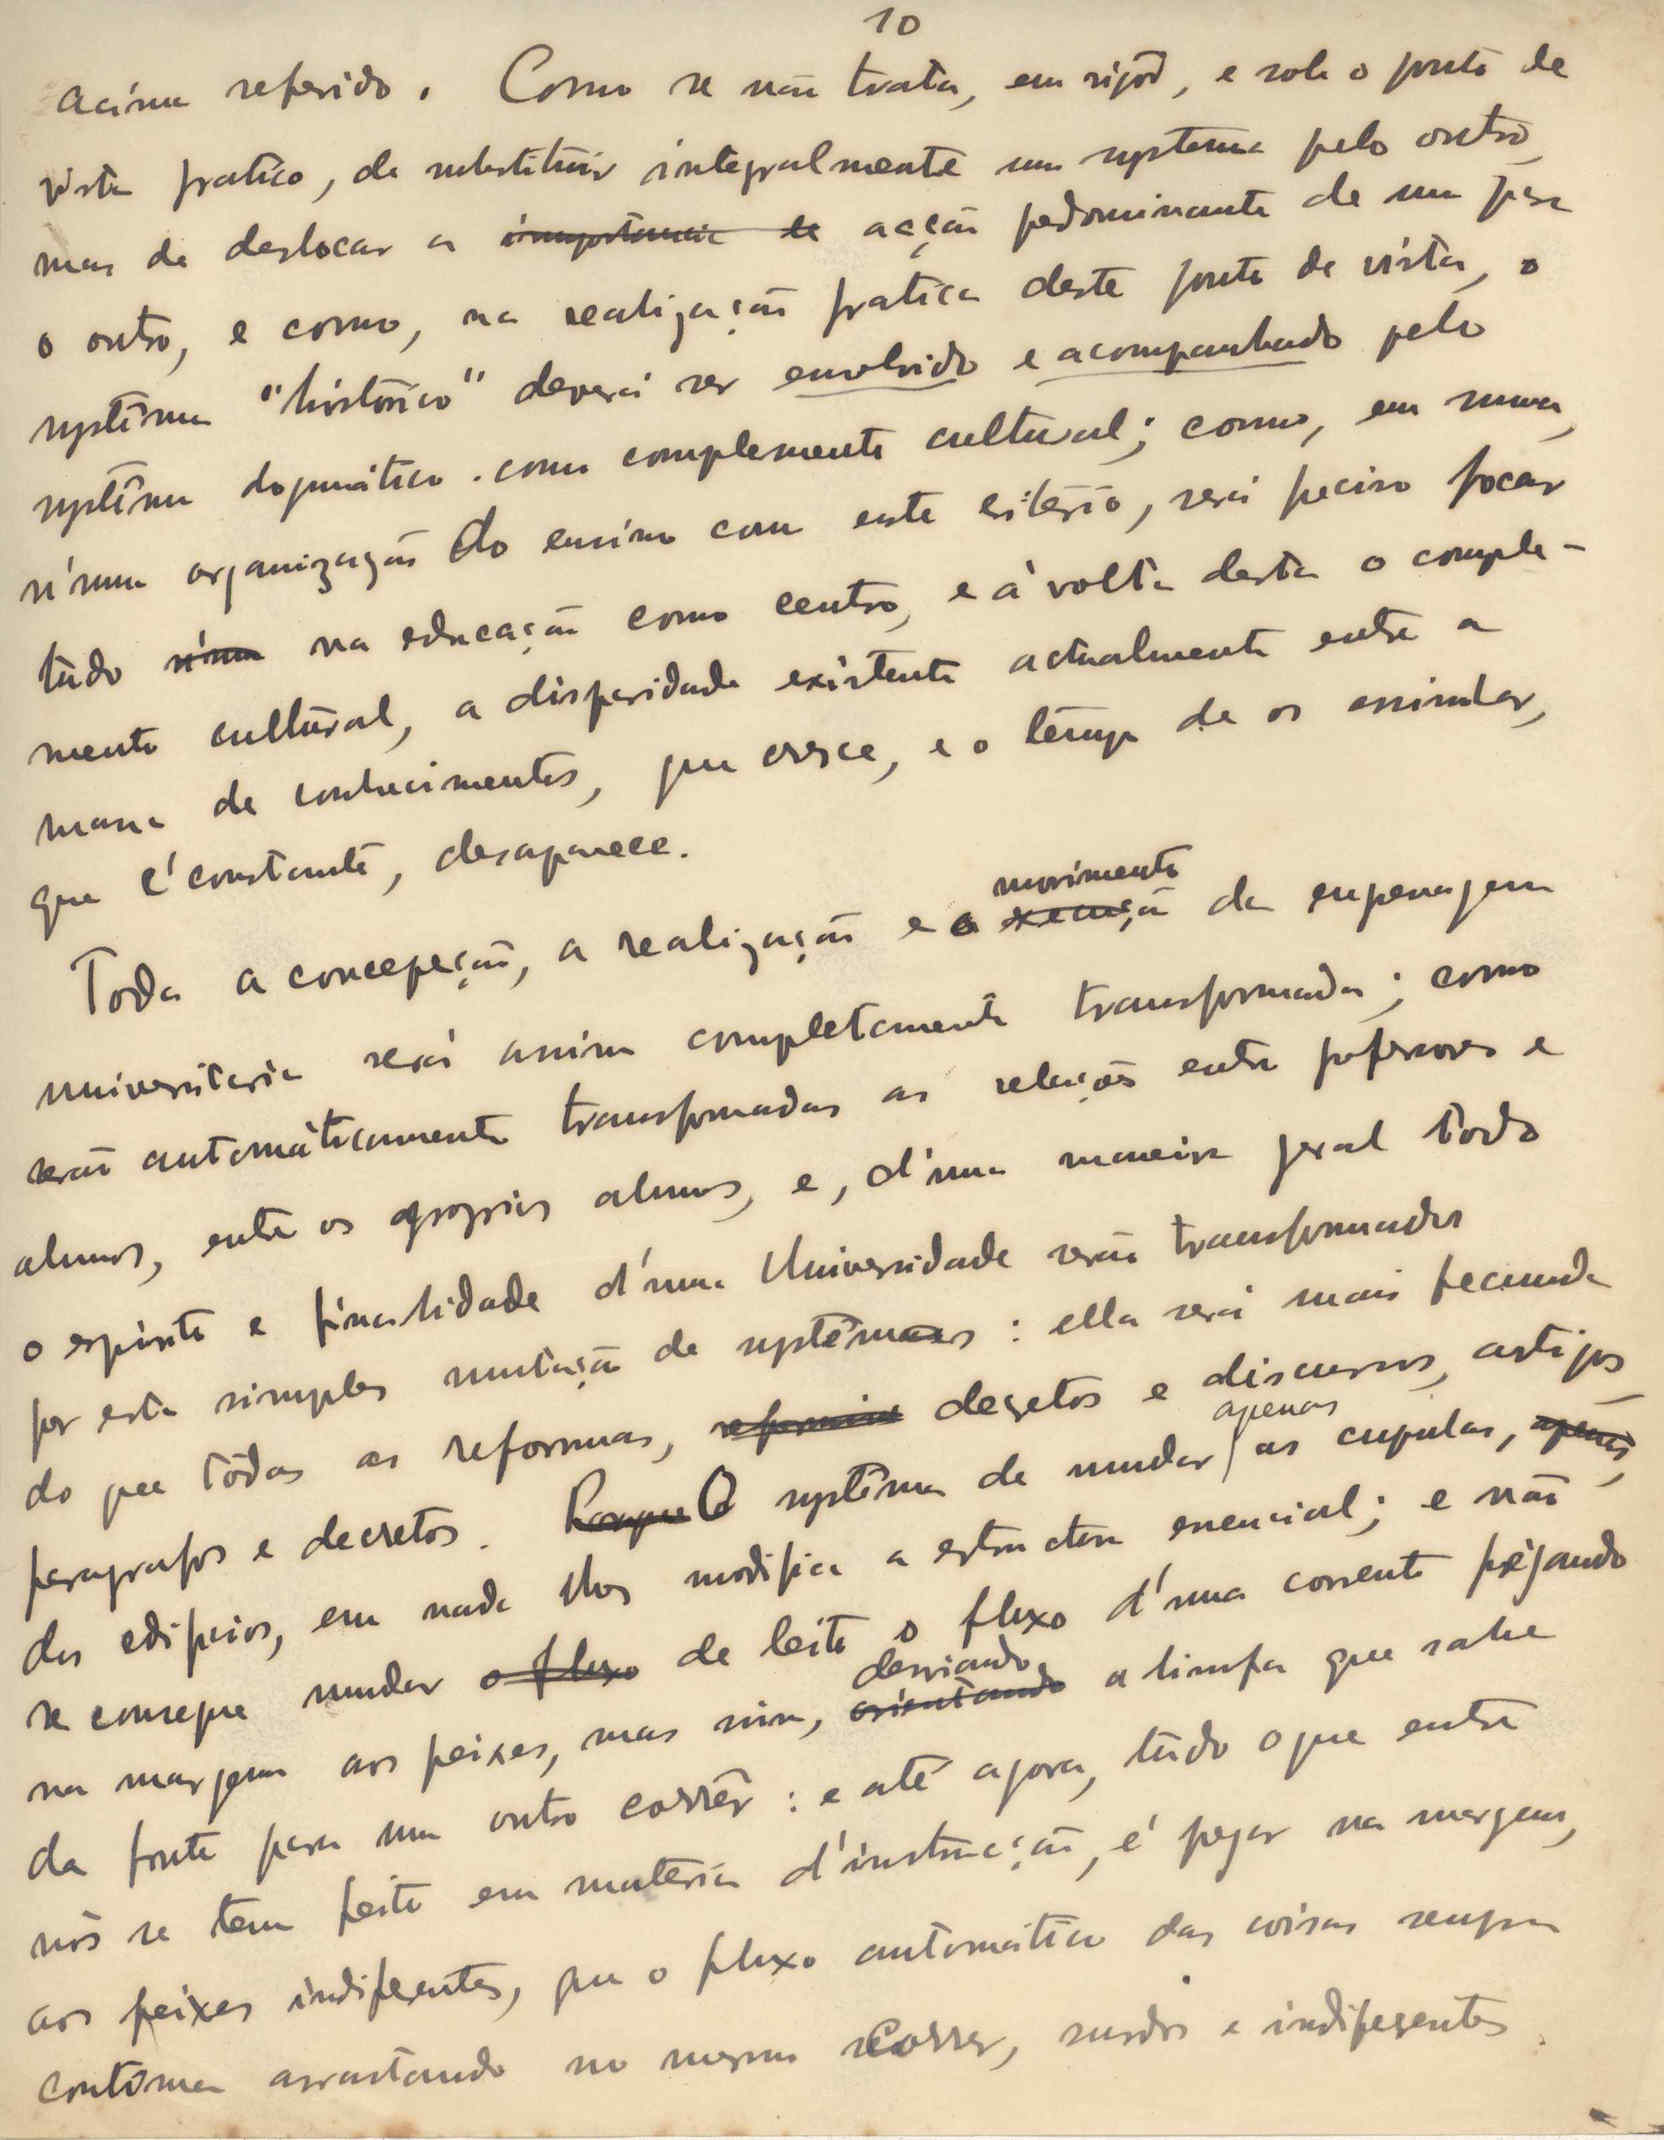 10
acima referido. Como se não trata, em rigôr, e sob o ponto de
vista pratico, de substituir integralmente um systema pelo outro,
mas de deslocar a importancia de acção pedominante de um para
o outro, e como, na realização pratica deste ponto de vista, o
systêma "histórico" deverá ser envolvido e acompanhado pelo
systêma dogmático como complemento cultural; como, em suma,
n'uma organização do ensino com este critério, será peciso focar
tudo n'uma na educação como centro, e á volta desta o comple-
mento cultural, a disparidade existente actualmente entre a
massa de conhecimentos, que cresce, e o tempo de os assimilar,
que é constante, desaparece.
movimento
Toda a concepção, a realização e o execução da engrenagem
universitaria será assim completamente transformada; como
serão automáticamente transformadas as relações entre pofessores e
alunos, entre os proprios alunos, e, d'uma maneira geral todo
o espirito e finalidade d'uma Universidade serão transformados
por esta simples mutação de systêmas: ella será mais fecunda
do que tôdas as reformas, decretos e discursos, artigos
apenas
paragrafos e decretos. Porque O systêma de mudar as cupulas, apenas,
dos edificios, em nada lhes modifica a estructura essencial; e não
se consegue mudar o fluxo de leito o fluxo d'uma corrente prégando
desviando
na margem aos peixes, mas sim, orientando a limfa que sahe
da fonte para um outro corrêr: e até agora, tudo o que entre
nós se tem feito em materia d'instrucção, é pregar na margem,
aos peixes indiferentes, que o fluxo automático das coisas sempre
continua arrastando no mesmo correr, surdos e indiferentes